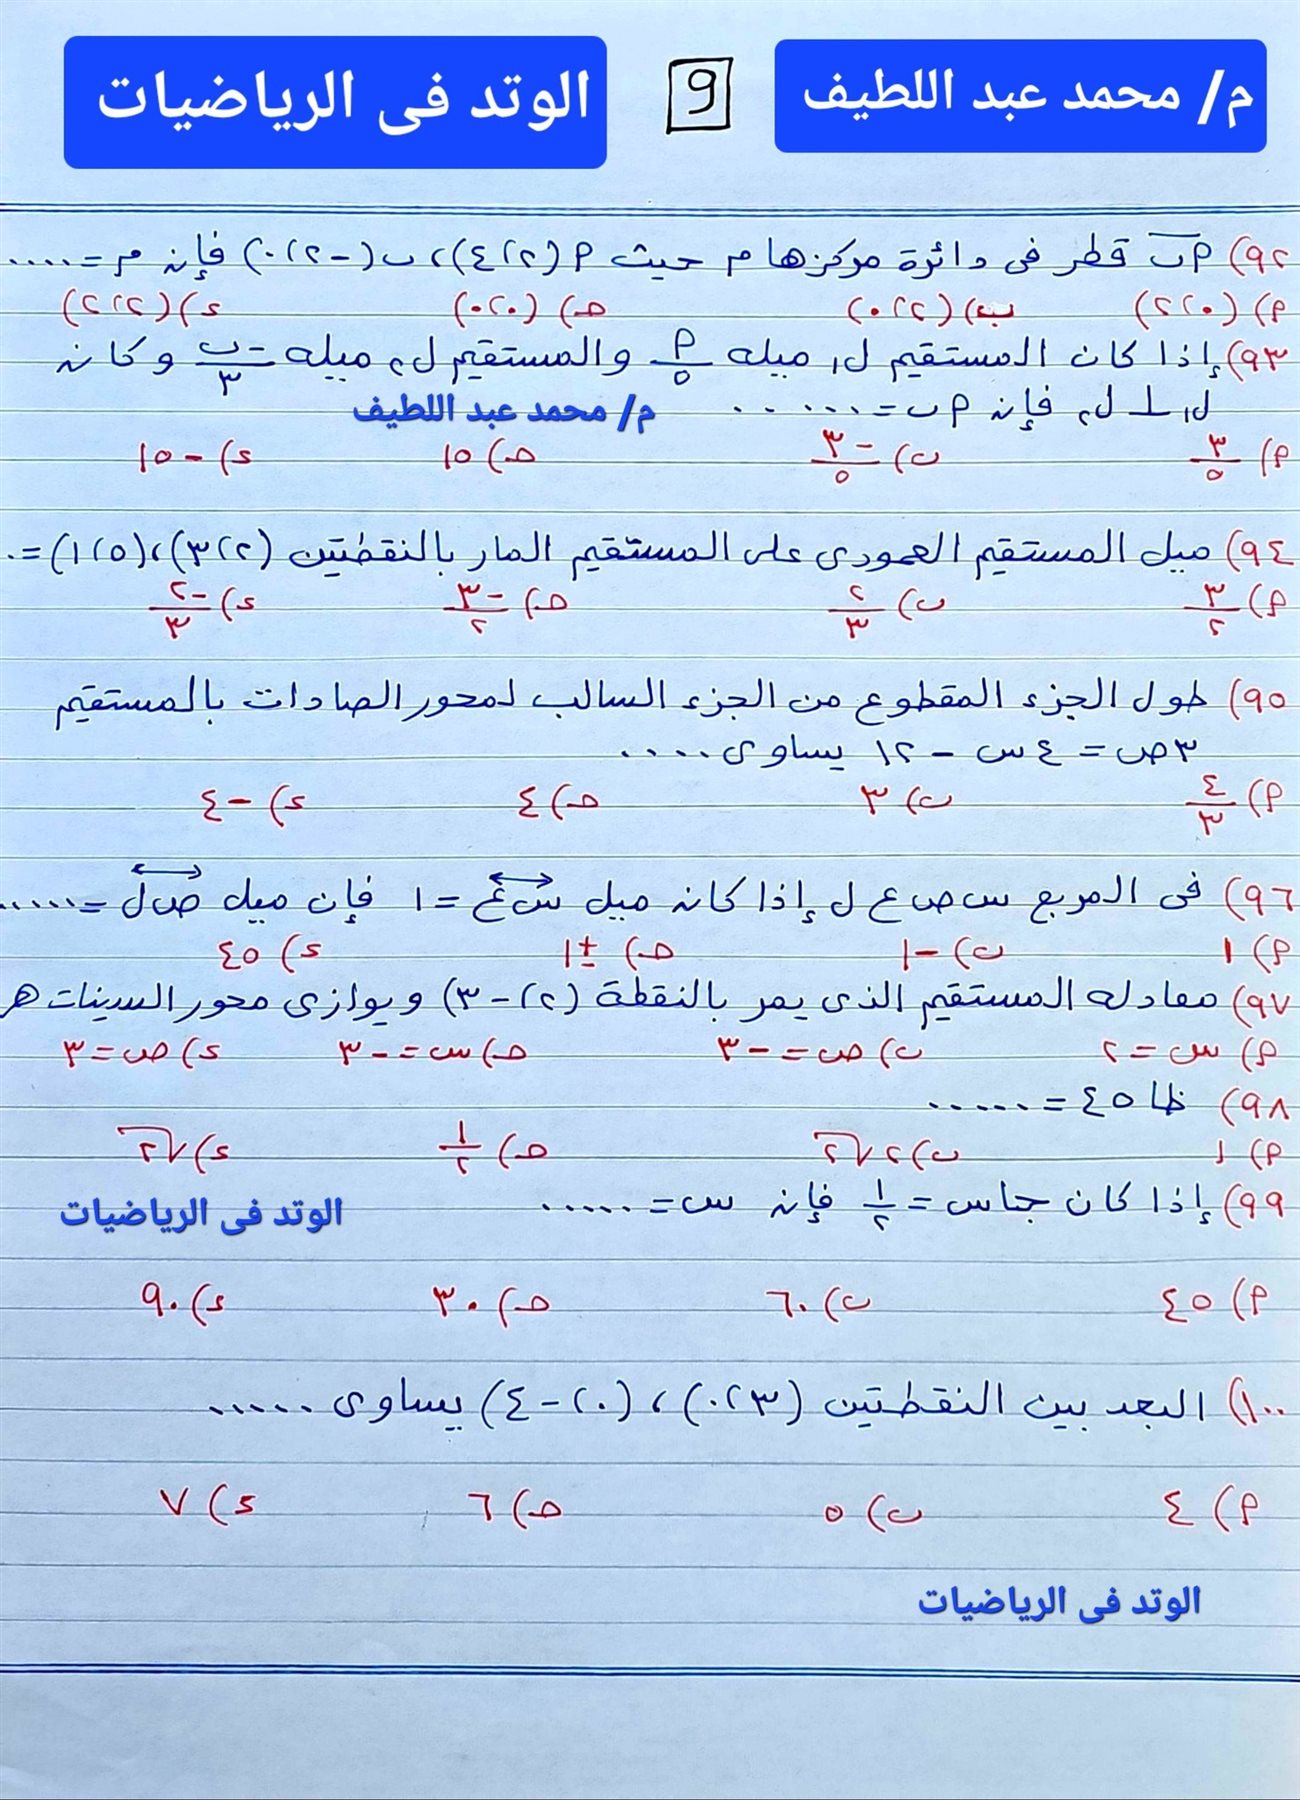 م/ محمد عبد اللطيف 9 الوتد فى الرياضيات
٩٢) أب قطر فى دائرة مركزها م حيث أ (٢، ٤)، ب (-٢، ٠) فإن م = ....
أ) (٠، ٢) ب) (٢، ٠) حـ) (٠، ٠) ء) (٢، ٢)
٩٣) إذا كان المستقيم ل١ ميله أ/٥ والمستقيم ل٢ ميله -ب/٣ وكان
ل١ ⊥ ل٢ فإن أ ب = ......
م/ محمد عبد اللطيف
أ) ٣/٥ ب) -٣/٥ حـ) ١٥ ء) -١٥
٩٤) ميل المستقيم العمودى على المستقيم المار بالنقطتين (٢، ٣)، (٥، ١) = .
أ) ٣/٢ ب) ٢/٣ حـ) -٣/٢ ء) -٢/٣
٩٥) طول الجزء المقطوع من الجزء السالب لمحور الصادات بالمستقيم
٣ص = ٤س - ١٢ يساوى ....
أ) ٤/٣ ب) ٣ حـ) ٤ ء) -٤
٩٦) فى المربع س ص ع ل إذا كان ميل س ع = ١ فإن ميل ص ل = .....
أ) ١ ب) -١ حـ) ±١ ء) ٤٥
٩٧) معادلة المستقيم الذى يمر بالنقطة (٢، -٣) ويوازى محور السينات هى
أ) س = ٢ ب) ص = -٣ حـ) س = -٣ ء) ص = ٣
٩٨) ظا ٤٥ = ......
أ) ١ ب) ٢√٢ حـ) ١/٢ ء) √٢
٩٩) إذا كان جتاس = ١/٢ فإن س = .....
الوتد فى الرياضيات
أ) ٤٥ ب) ٦٠ حـ) ٣٠ ء) ٩٠
١٠٠) البعد بين النقطتين (٣، ٠)، (٠، -٤) يساوى .....
أ) ٤ ب) ٥ حـ) ٦ ء) ٧
الوتد فى الرياضيات